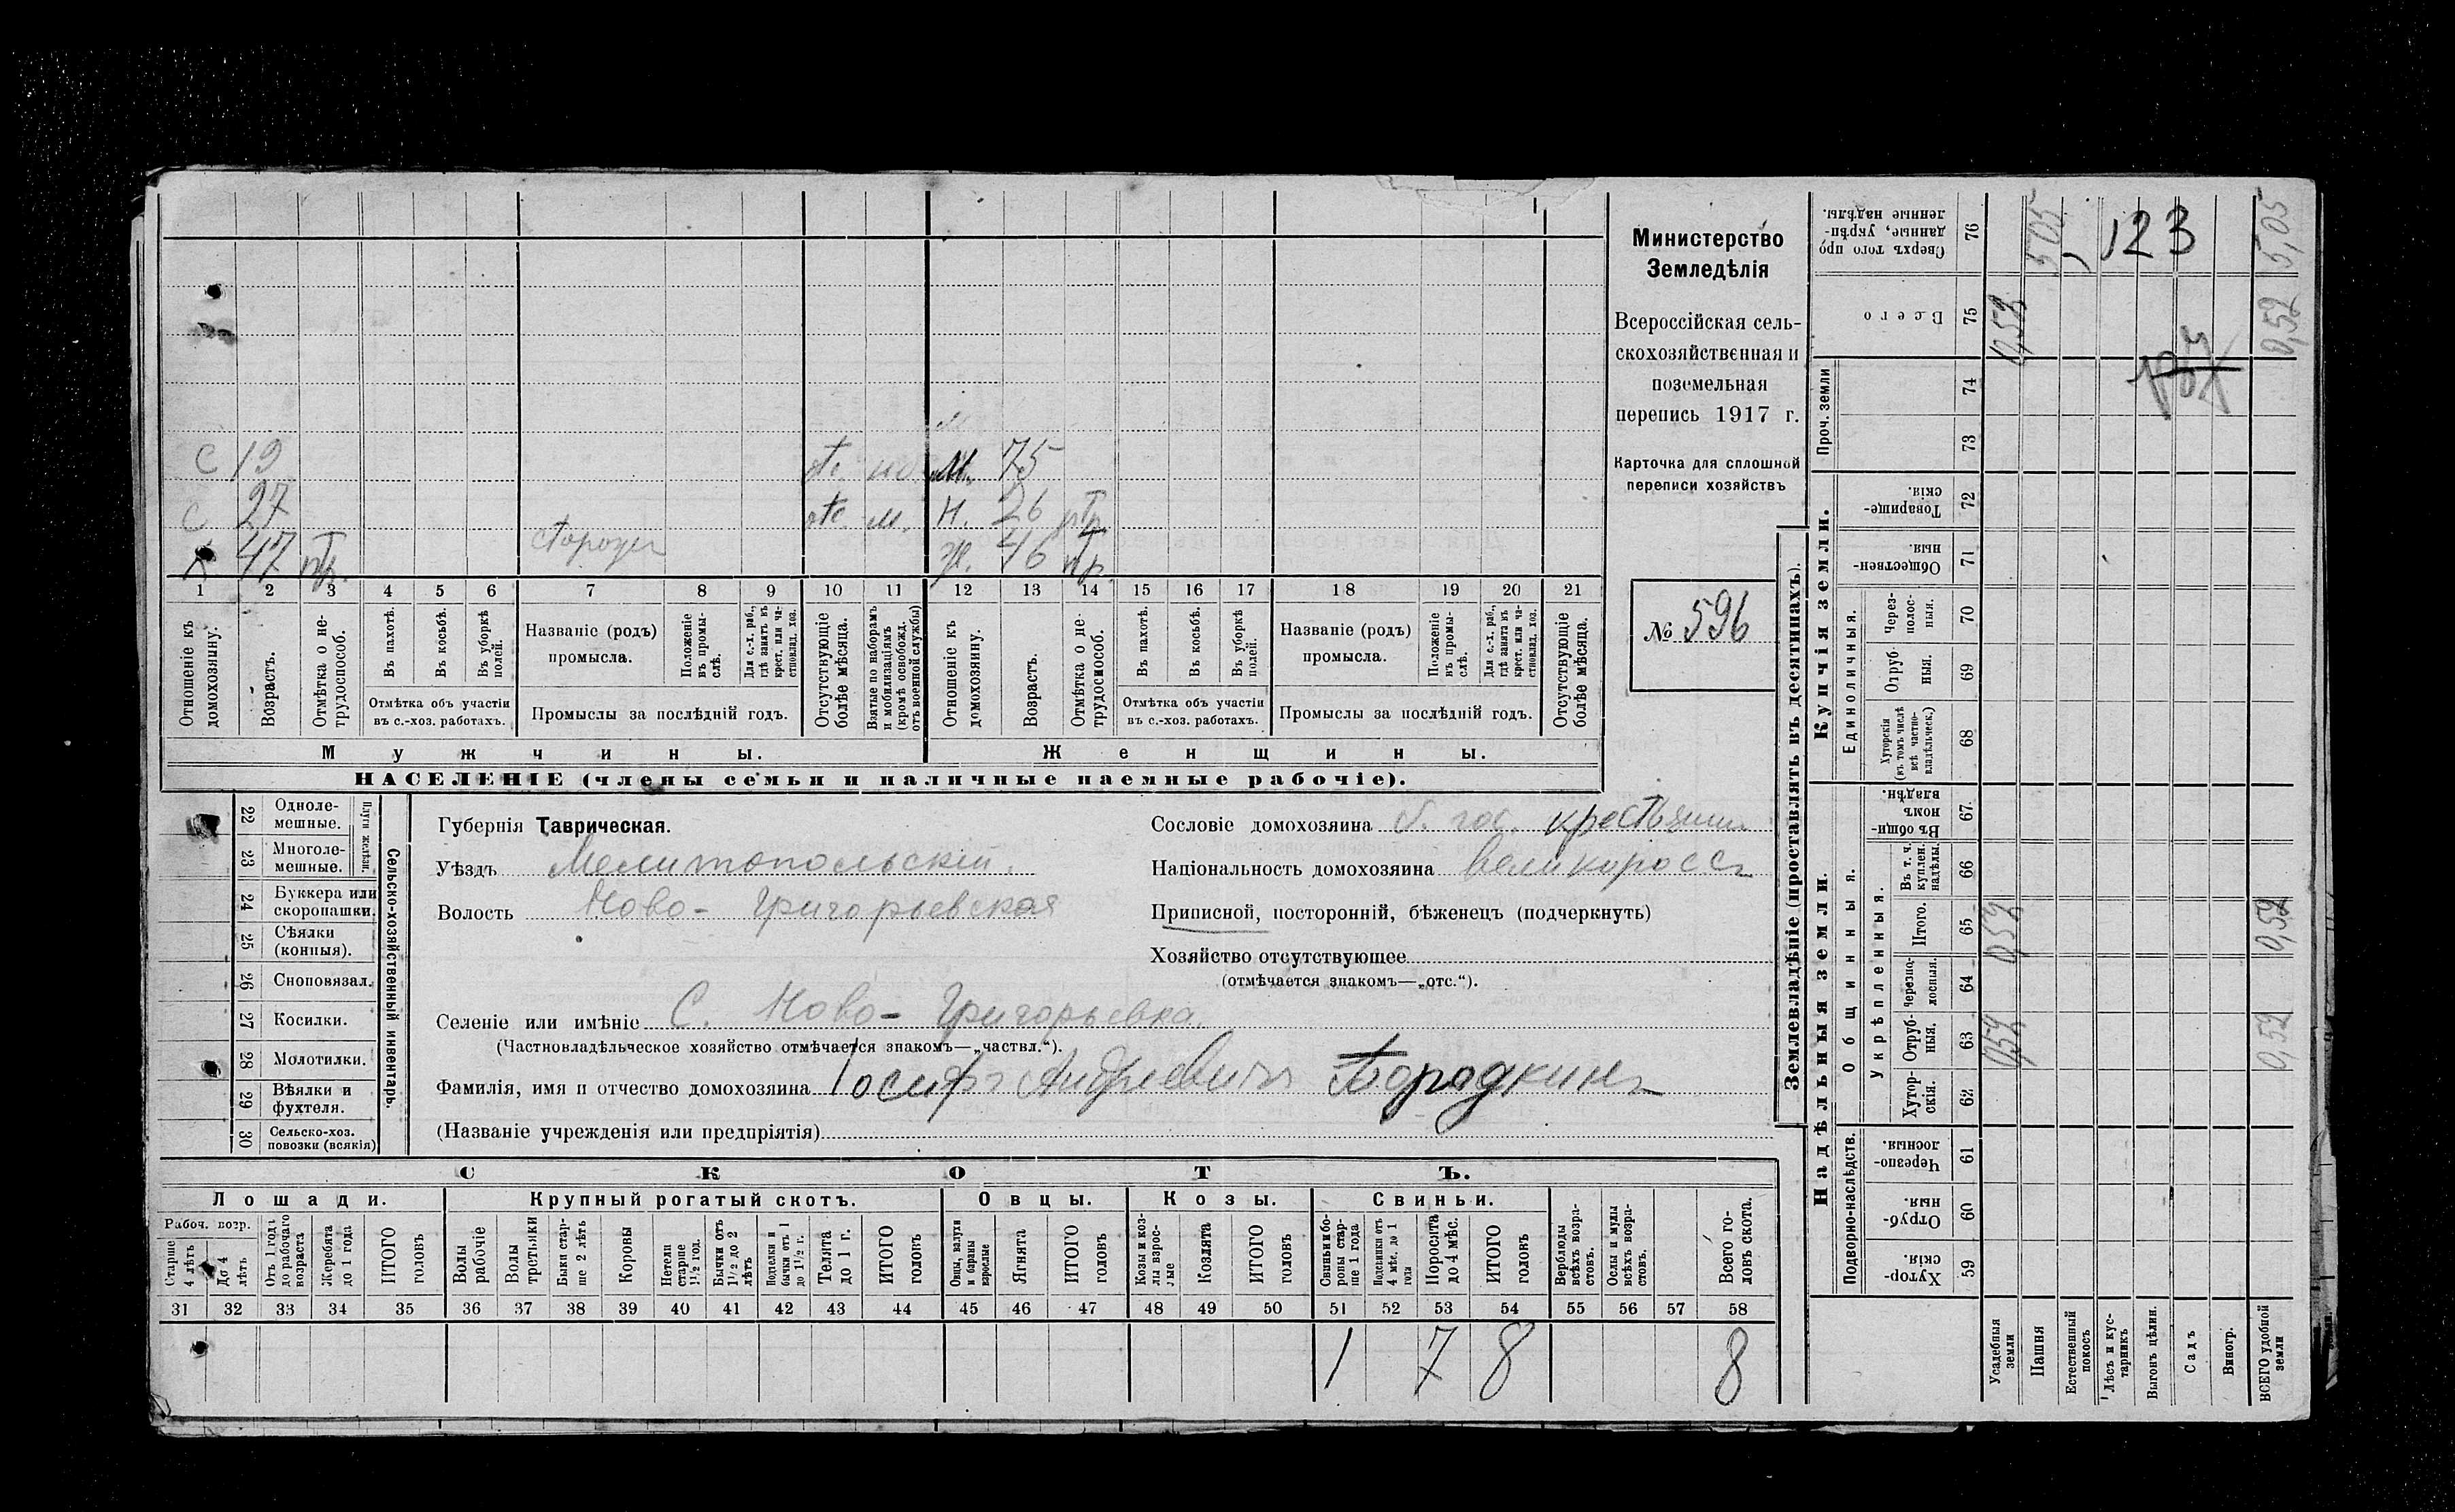 С 19 отс. М. 75
С 27 отс. м. Н. 26 тр.
Х 47 тр. Ж. 46 тр.
1 2 3 4 5 6 7 8 9 10 11 12 13 14 15 16 17 18 19 20 21
Отношеніе къ домохозяину.
Возрастъ.
Отмѣтка о нетрудоспособ.
Въ пахотѣ.
Въ косьбѣ.
Въ уборкѣ полей.
Отмѣтка объ участіи въ с.-хоз. работахъ.
Названіе (родъ) промысла.
Положеніе въ промыслѣ.
Для с.-х. раб., гдѣ занятъ въ крест. или частновлад. хоз.
Промыслы за послѣдній годъ.
Отсутствующіе болѣе мѣсяца.
Взятые по наборамъ и мобилизаціямъ (кромѣ освобожд. отъ военной службы)
Отношеніе къ домохозяину.
Возрастъ.
Отмѣтка о нетрудоспособ.
Въ пахотѣ.
Въ косьбѣ.
Въ уборкѣ полей.
Отмѣтка объ участіи въ с.-хоз. работахъ.
Названіе (родъ) промысла.
Положеніе въ промыслѣ.
Для с.-х. раб., гдѣ занятъ въ крест. или частновлад. хоз.
Промыслы за послѣдній годъ.
Отсутствующіе болѣе мѣсяца.
Мужчины.
Женщины.
НАСЕЛЕНІЕ (члены семьи и наличные наемные рабочіе).
Министерство
Земледѣлія
Всероссійская сель-
скохозяйственная и
поземельная
перепись 1917 г.
Карточка для сплошной
переписи хозяйствъ
№ 596
22 Одноле-
мешные.
23 Многоле-
мешные.
Плуги желѣзн.
24 Буккера или
скоропашки.
25 Сѣялки
(конныя).
26 Сноповязал.
27 Косилки.
28 Молотилки.
29 Вѣялки и
фухтеля.
30 Сельско-хоз.
повозки (всякія)
Сельско-хозяйственный инвентарь.
Губернія Таврическая.
Уѣздъ Мелитопольскій.
Волость Ново-Григорьевская
Селеніе или имѣніе С. Ново-Григорьевка.
(Частновладѣльческое хозяйство отмѣчается знакомъ—„частвл.“).
Фамилія, имя и отчество домохозяина Іосифъ Андреевичъ Бородкинъ
(Названіе учрежденія или предпріятія)
Сословіе домохозяина б. гос. крестьянин
Національность домохозяина великороссъ
Приписной, посторонній, бѣженецъ (подчеркнуть)
Хозяйство отсутствующее
(отмѣчается знакомъ—„отс.“).
СКОТЪ.
Лошади.
Крупный рогатый скотъ.
Овцы.
Козы.
Свиньи.
Рабоч. возр.
Старше 4 лѣтъ
До 4 лѣтъ
Отъ 1 года до рабочаго возраста
Жеребята до 1 года
ИТОГО головъ
Волы рабочіе
Волы третьяки
Быки старше 2 лѣтъ
Коровы
Нетели старше 1½ год.
Бычки отъ 1½ до 2 лѣтъ
Подтелки и бычки отъ 1 до 1½ г.
Телята до 1 г.
ИТОГО головъ
Овцы, валухи и бараны взрослые
Ягнята
ИТОГО головъ
Козы и козлы взрослые
Козлята
ИТОГО головъ
Свиньи и боровы старше 1 года
Подсвинки отъ 4 мѣс. до 1 года
Поросята до 4 мѣс.
ИТОГО головъ
Верблюды всѣхъ возрастовъ.
Ослы и мулы всѣхъ возрастовъ.
Всего головъ скота.
31 32 33 34 35 36 37 38 39 40 41 42 43 44 45 46 47 48 49 50 51 52 53 54 55 56 57 58
1 7 8 8
Землевладѣніе (проставлять въ десятинахъ).
Сверхъ того проданные, укрѣпленные надѣлы. 76 5,05 123 5,05
Всего 75 0,52 0,52
Проч. земли
74
73
Купчія земли.
Товарищескія. 72
Общественныя. 71
Единоличныя.
Черезполосныя. 70
Отрубныя. 69
Хуторскія (въ томъ числѣ всѣ частновладѣльческ.) 68
Надѣльныя земли.
Общинныя.
Въ общинномъ владѣн. 67
Укрѣпленныя.
Въ т. ч. куплен. надѣлы. 66
Итого. 65 0,52 0,52
Черезполосныя. 64
Отрубныя. 63 0,52 0,52
Хуторскія. 62
Подворно-наслѣдств.
Черезполосныя. 61
Отрубныя. 60
Хуторскія. 59
Усадебныя земли
Пашня
Естественный покосъ
Лѣсъ и кустарникъ
Выгонъ цѣлин.
Садъ
Виногр.
ВСЕГО удобной земли